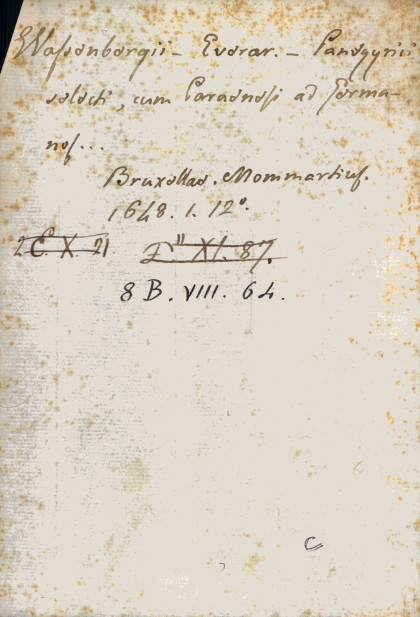 Wassenbergii - Everar. - Panegyrici
selecti, cum Paraenesi ad Germa-
nos...
Bruxellae. Mommartius.
1648. 1. 12°.
2 C° X. 21 XI. 87.
8 B. VIII. 64.
C